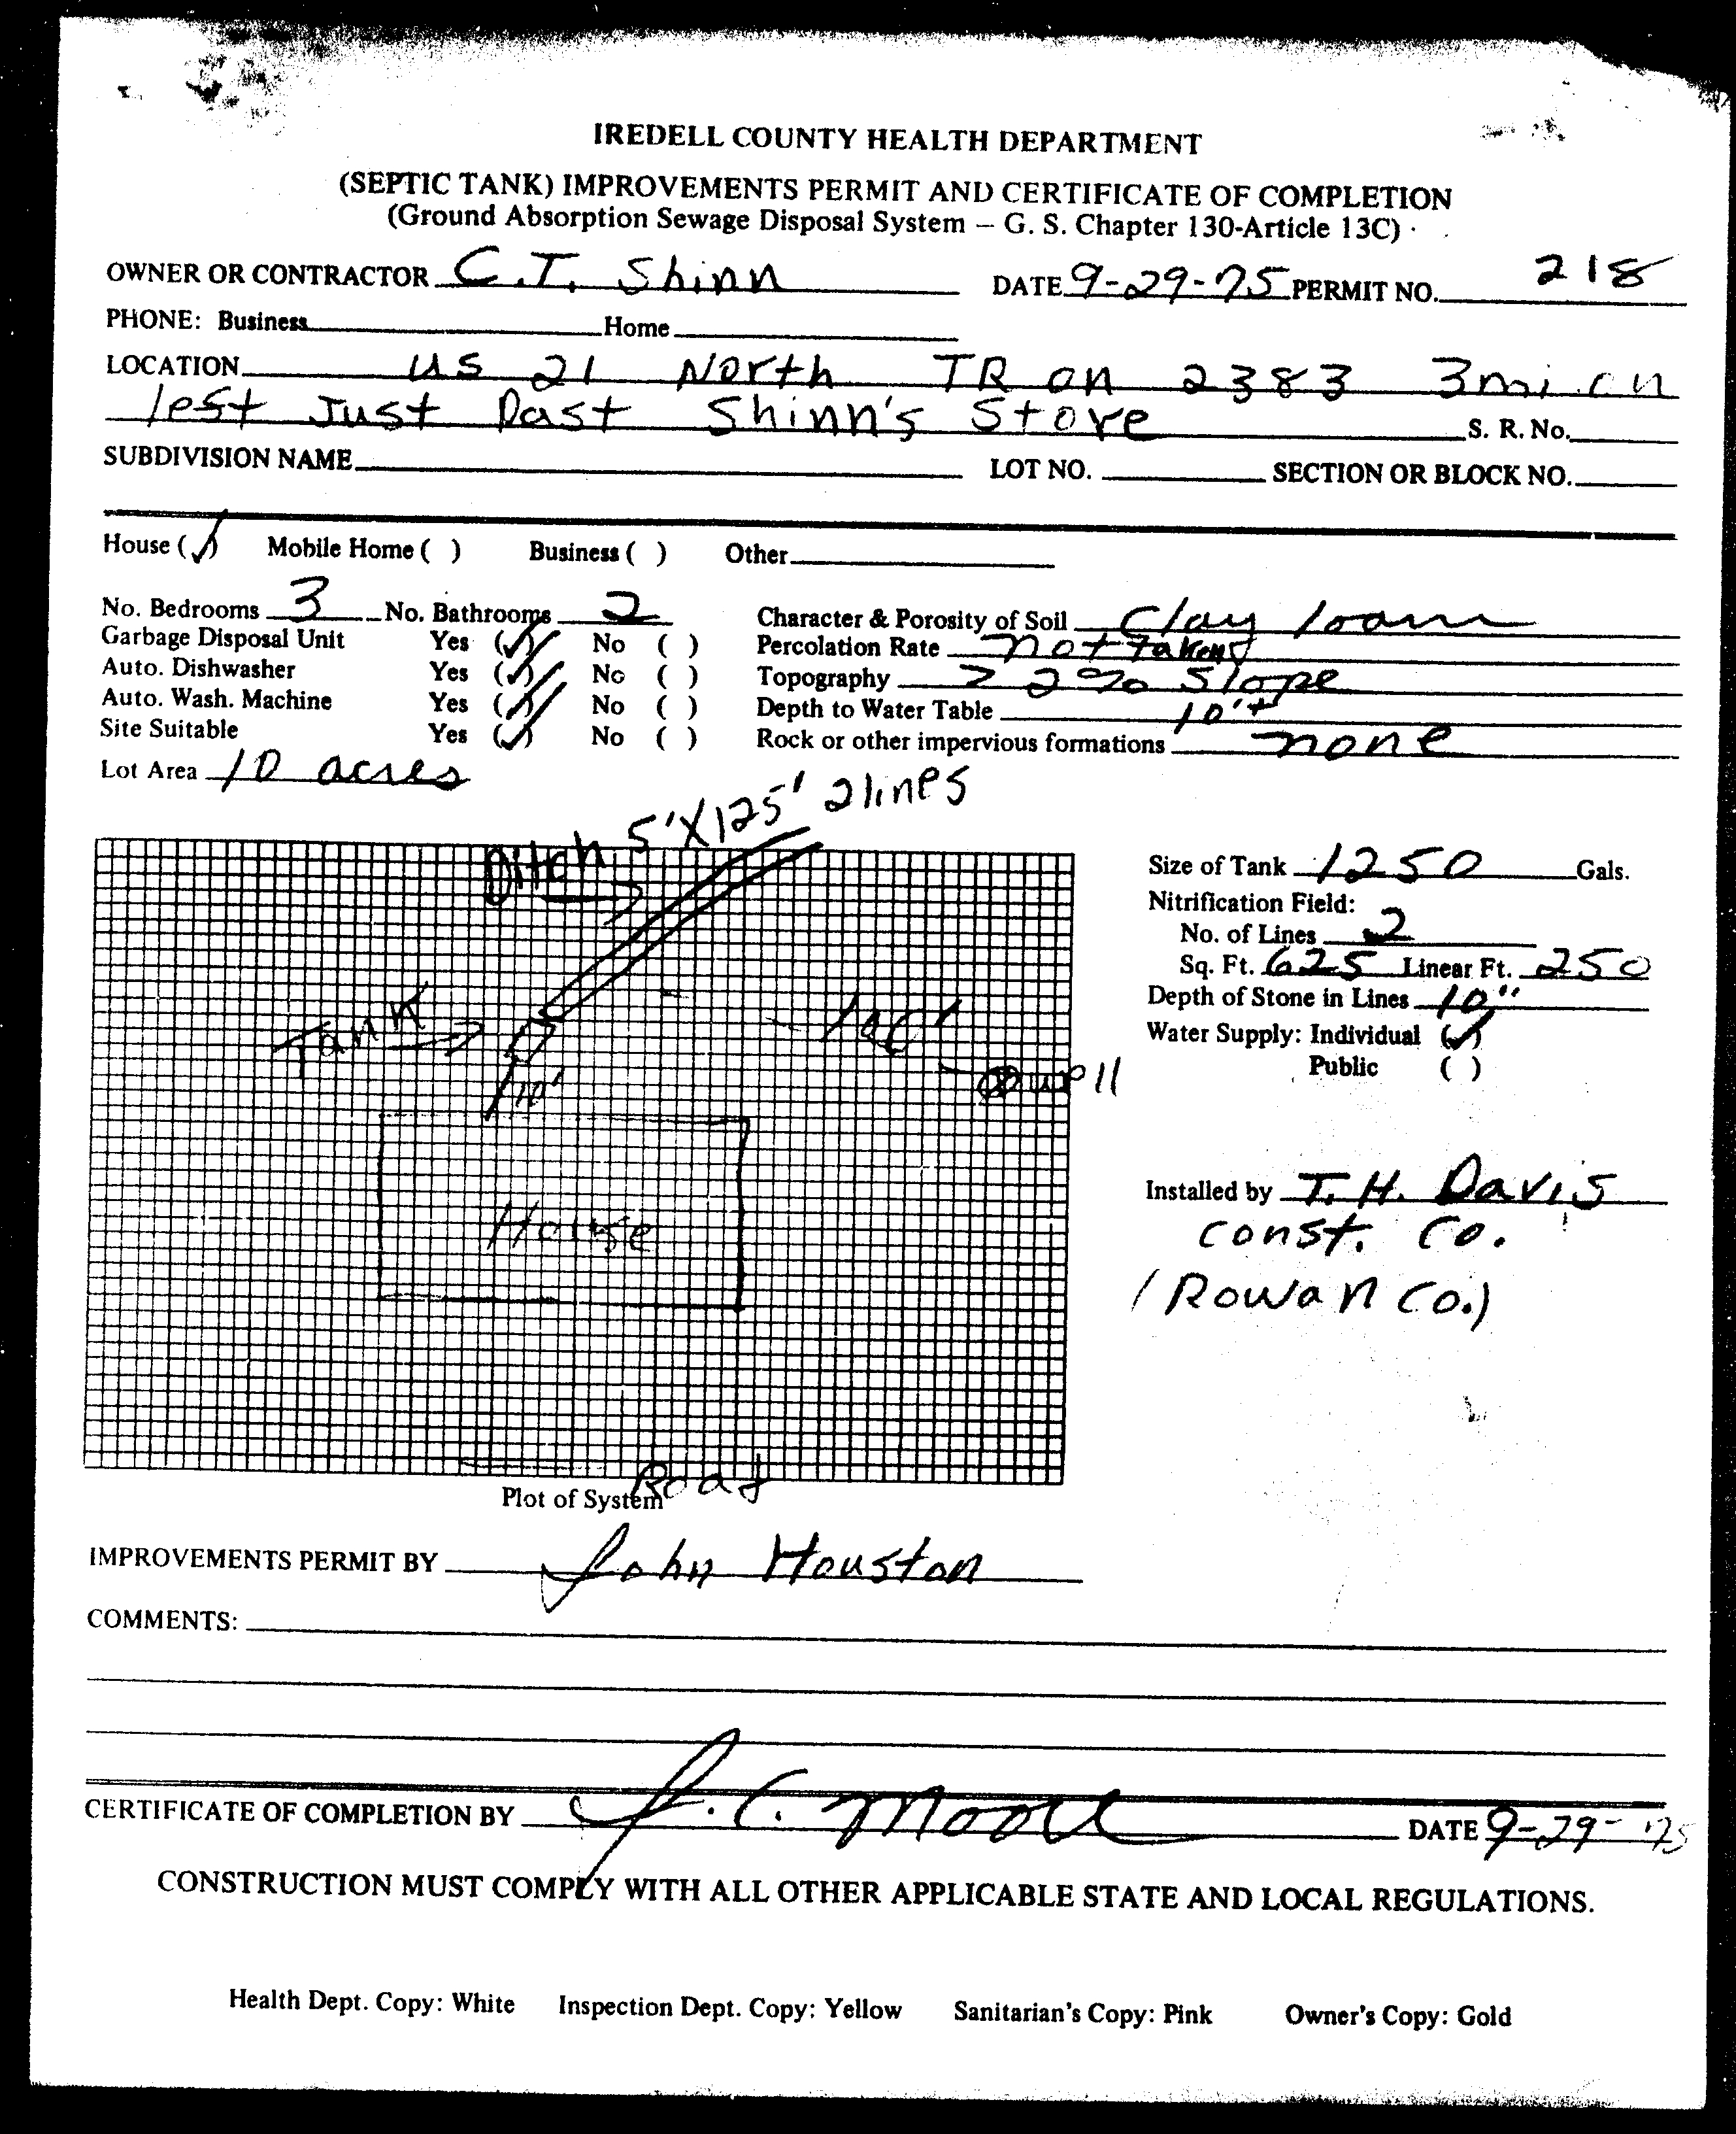 IREDELL COUNTY HEALTH DEPARTMENT
(SEPTIC TANK) IMPROVEMENTS PERMIT AND CERTIFICATE OF COMPLETION
(Ground Absorption Sewage Disposal System – G. S. Chapter 130-Article 13C)
OWNER OR CONTRACTOR C.T. Shinn DATE 9-29-75 PERMIT NO. 218
PHONE: Business Home
LOCATION US 21 North TR on 2383 3mi on
left Just Past Shinn's Store S. R. No.
SUBDIVISION NAME LOT NO. SECTION OR BLOCK NO.
House (✓) Mobile Home ( ) Business ( ) Other
No. Bedrooms 3 No. Bathrooms 2 Character & Porosity of Soil Clay loam
Garbage Disposal Unit Yes (✓) No ( ) Percolation Rate not taken
Auto. Dishwasher Yes (✓) No ( ) Topography > 2% Slope
Auto. Wash. Machine Yes (✓) No ( ) Depth to Water Table 10'+
Site Suitable Yes (✓) No ( ) Rock or other impervious formations none
Lot Area 10 acres
Ditch 5'X125' 2lines
Size of Tank 1250 Gals.
Nitrification Field:
No. of Lines 2
Sq. Ft. 625 Linear Ft. 250
Depth of Stone in Lines 10"
Tank
Water Supply: Individual (✓)
Public ( )
well
10'
Installed by T.H. Davis
const. Co.
House
(Rowan Co.)
Road
Plot of System
IMPROVEMENTS PERMIT BY John Houston
COMMENTS:
CERTIFICATE OF COMPLETION BY J.C. Moore DATE 9-29-75
CONSTRUCTION MUST COMPLY WITH ALL OTHER APPLICABLE STATE AND LOCAL REGULATIONS.
Health Dept. Copy: White Inspection Dept. Copy: Yellow Sanitarian's Copy: Pink Owner's Copy: Gold